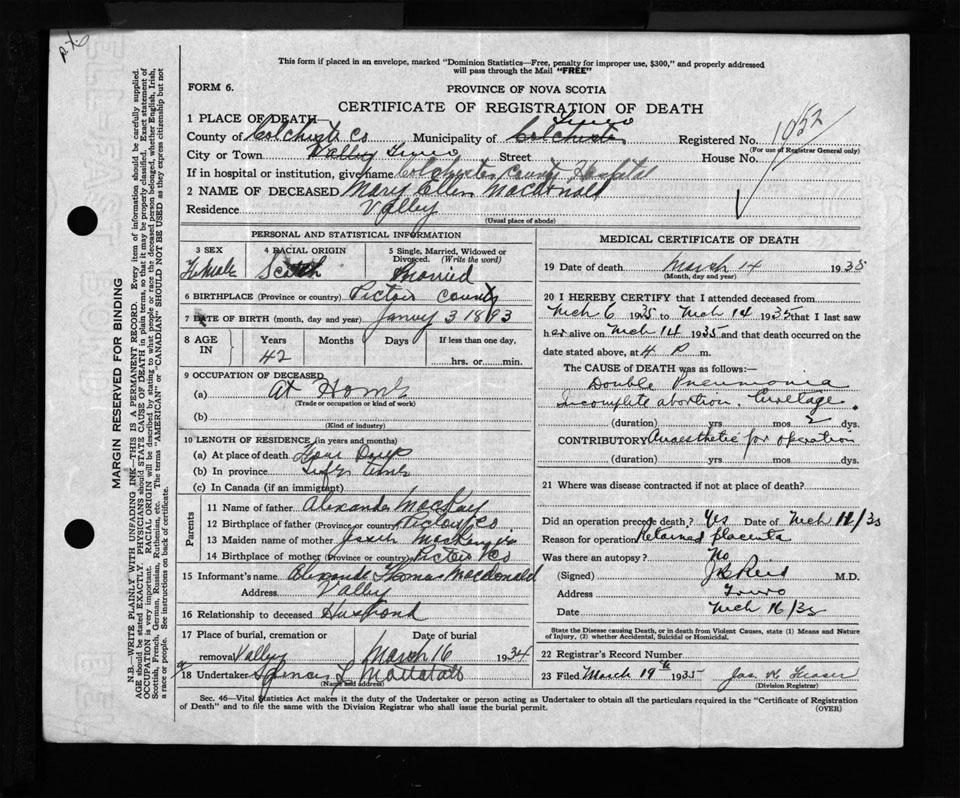 This form if placed in an envelope, marked "Dominion Statistics—Free, penalty for improper use, $300," and properly addressed
will pass through the Mail "FREE"
FORM 6.
PROVINCE OF NOVA SCOTIA
CERTIFICATE OF REGISTRATION OF DEATH
1 PLACE OF DEATH— Truro
County of Colchester Co Municipality of Colchester Registered No. 1052
(For use of Registrar General only)
City or Town Valley Truro Street House No.
If in hospital or institution, give name Colchester County Hospital
2 NAME OF DECEASED Mary Ellen Macdonald
Residence Valley
(Usual place of abode)
PERSONAL AND STATISTICAL INFORMATION
3 SEX 4 RACIAL ORIGIN 5 Single, Married, Widowed or
Divorced. (Write the word)
Female Scotch Married
6 BIRTHPLACE (Province or country) Pictou County
7 DATE OF BIRTH (month, day and year) 3 1893
8 AGE IN Years Months Days If less than one day,
42 hrs. or min.
9 OCCUPATION OF DECEASED
(a) At Home
(Trade or occupation or kind of work)
(b)
(Kind of industry)
10 LENGTH OF RESIDENCE (in years and months)
(a) At place of death Four Days
(b) In province Life time
(c) In Canada (if an immigrant)
Parents
11 Name of father Alexander MacKay
12 Birthplace of father (Province or country) Pictou Co.
13 Maiden name of mother MacKenzie
14 Birthplace of mother (Province or country) Pictou Co
15 Informant's name Alexander Thomas Macdonald
Address Valley
16 Relationship to deceased Husband
17 Place of burial, cremation or Date of burial
removal Valley March 16 1934
18 Undertaker L Mattatall
(Name and address)
MEDICAL CERTIFICATE OF DEATH
19 Date of death March 14 1935
(Month, day and year)
20 I HEREBY CERTIFY that I attended deceased from
Mch 6 1935 to Mch 14 1935 that I last saw
her alive on Mch 14 1935 and that death occurred on the
date stated above, at 4 P m.
The CAUSE OF DEATH was as follows:—
Double Pneumonia
Incomplete abortion. Curetage.
(duration) yrs mos 2 dys.
CONTRIBUTORY Anaesthetic for operation
(duration) yrs. mos dys.
21 Where was disease contracted if not at place of death?
Did an operation precede death? Yes Date of Mch 12/35
Reason for operation Retained placenta
Was there an autopsy? No
(Signed) Reid M.D.
Address Truro
Date Mch 16/35
State the Disease causing Death, or in death from Violent Causes, state (1) Means and Nature
of Injury, (2) whether Accidental, Suicidal or Homicidal.
22 Registrar's Record Number
23 Filed March 19th 1935 Jas. Fraser
(Division Registrar)
Sec. 46—Vital Statistics Act makes it the duty of the Undertaker or person acting as Undertaker to obtain all the particulars required in the "Certificate of Registration
of Death" and to file the same with the Division Registrar who shall issue the burial permit.
(OVER)
MARGIN RESERVED FOR BINDING
N.B.—WRITE PLAINLY WITH UNFADING INK—THIS IS A PERMANENT RECORD. Every item of information should be carefully supplied.
AGE should be stated EXACTLY. PHYSICIANS should STATE CAUSE OF DEATH in plain terms, so that it may be properly classified. Exact statement of
OCCUPATION is very important. RACIAL ORIGIN will be described by stating to what people or race the deceased person belonged, whether English, Irish,
Scottish, French, German, Russian, Ruthenian, etc. The terms "AMERICAN" or "CANADIAN" SHOULD NOT BE USED as they express citizenship but not
a race or people. See instructions on back of certificate.